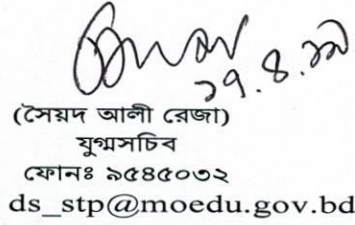 ১৭.৪.১৯
(সৈয়দ আলী রেজা)
যুগ্মসচিব
ফোনঃ ৯৫৪৫০৩২
ds_stp@moedu.gov.bd